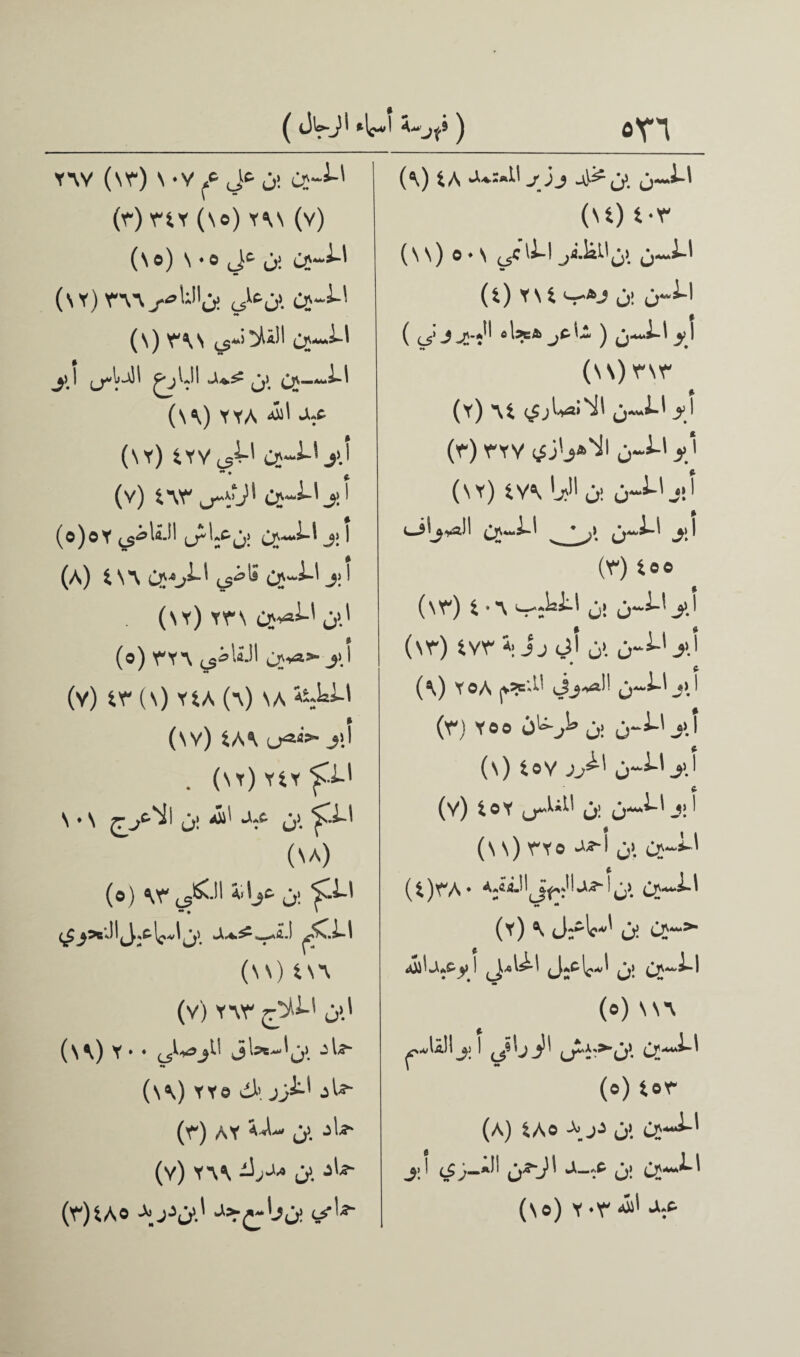 ٥٣٦ ( فهرسة أسماء الرجال )
الحسن بن مخلد وزير المعتمد ٤٨ (٩)
٤٠٣ (١٤)
الحسن بن المظفر الحاتمي ٥٠١ (١١)
الحسن بن وهب ٢١٤ (٤)
أبو الحسن ( شاعر هجاء )
٣١٣ (١١)
أبو الحسن الأنصاري ٦٤ (٢)
أبو الحسن الأهوازي ٣٢٧ (٣)
أبو الحسن بن الفرا ٤٧٩ (١٢)
أبو الحسن بن الحسين الصواف
٤٥٥ (٣)
أبو الحسن بن الخطيب ٤٠٦ (١٣)
أبو الحسن بن أبي ٤٧٣ (١٣)
أبو الحسن الصوري المنجم ٢٥٨ (٩)
أبو الحسن بن طرخان ٢٥٥ (٣)
أبو الحسن ٤٥٧ (١)
أبو الحسن بن المقدس ٤٥٢ (٧)
الحسين بن أحمد ٣٢٥ (١١)
الحسين بن أحمد الفقيه ٣٨٠ (٤)
حسين بن إسماعيل ٩ (٢)
الحسين بن إسماعيل المحاملي أبو عبدالله
١١٦ (٥)
الحسين بن حبيش الرافقي أبو القاسم
٤٥٣ (٥)
الحسين بن دريد ٤٨٥ (٨)
الحسين بن عبد الرحمن القرشي أبو
عبد الله ٢٠٣ (١٥)
الحسين بن علي عم ١٠٧ (١٣) ٢٦٧
(٧) ٢٩١ (١٥) ٣٤٢ (٣)
الحسين بن علي ١٠٥ (١٥)
الحسين بن علي بن الناصر ٣٦٦ (١٢)
الحسين القلانسي ٣٩١ (١)
الحسين بن محمد النازح الباسي أبو
عبد الله ٢٢٨ (١٩)
أبو الحسين الحي ٤٢٧ (١٢)
أبو الحسين الزنقي ٤٦٣ (٧)
أبو الحسين بن عياش القاضي ٥٢ (٥)
أبو الحسين قاضي الحرمين ٤١٦ (٨)
ابن الحصين ٢٣١ (١٢)
أبو حصين القاضي ٣٢٦ (٥)
الحطيئة ١٨ (٦) ٢٤٨ (١) ٤٣ (٧)
أبو حفص ٤٨٩ (١٧)
الحكم ٢٤٢ (١٢) .
الحكم بن عبد الله بن الأعرج ١٠١
(١٨)
الحكم بن عوانة الكلبي ٩٣ (٥)
الحكيم لقب محمد بن إسماعيل التجوي
٤١٦ (١١)
ابن الحلاج ٢٦٣ (٧)
حماد بن إسحاق الموصلي ٢٠٠ (١٩)
حماد الخزرنك ٢٢٥ (١٩)
حماد بن سلمة ٨٢ (٣)
حماد بن مدرك ٢٦٩ (٧)
حامي بن رامح جد ابن دريد ٤٨٥ (٣)